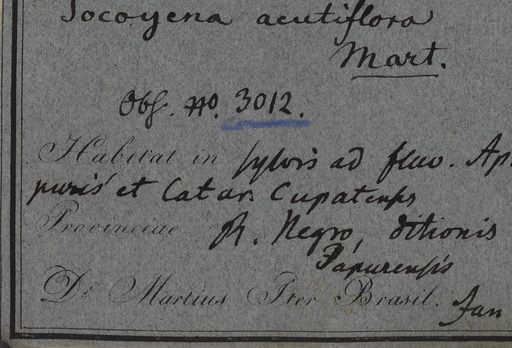 Tocoyena acutiflora
Mart.
Obs. No. 3012.
Habitat in sylvis ad fluv. Ap
puris et Catar. Cupatens
Provinciae R. Negro, ditionis
Japurensis
Dr Martius Iter Brasil. Jan